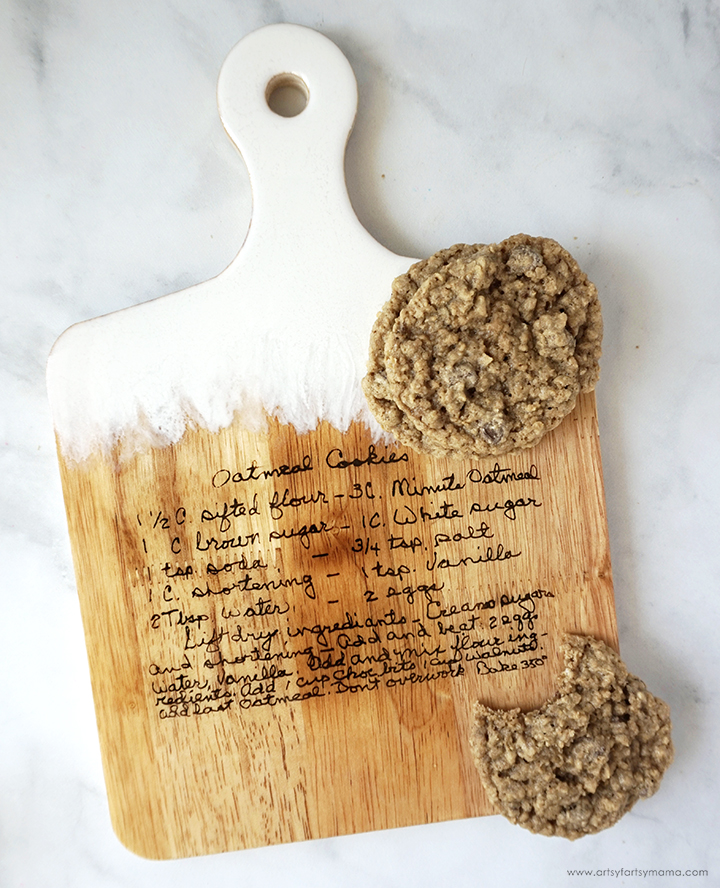 Oatmeal Cookies
1 1/2 C. sifted flour - 3C. Minute Oatmeal
1 C brown sugar - 1C. White sugar
1 tsp. soda - 3/4 tsp. salt
1 C. shortening - 1 tsp. Vanilla
2 Tbsp Water - 2 eggs
Sift dry ingredients - Cream sugars
and shortening - Add and beat 2 eggs
Water, Vanilla. Add and mix flour ing-
redients. Add 1 cup Choc bits 1 cup walnuts.
add last Oatmeal. Dont overwork Bake 350°
www.artsyfartsymama.com